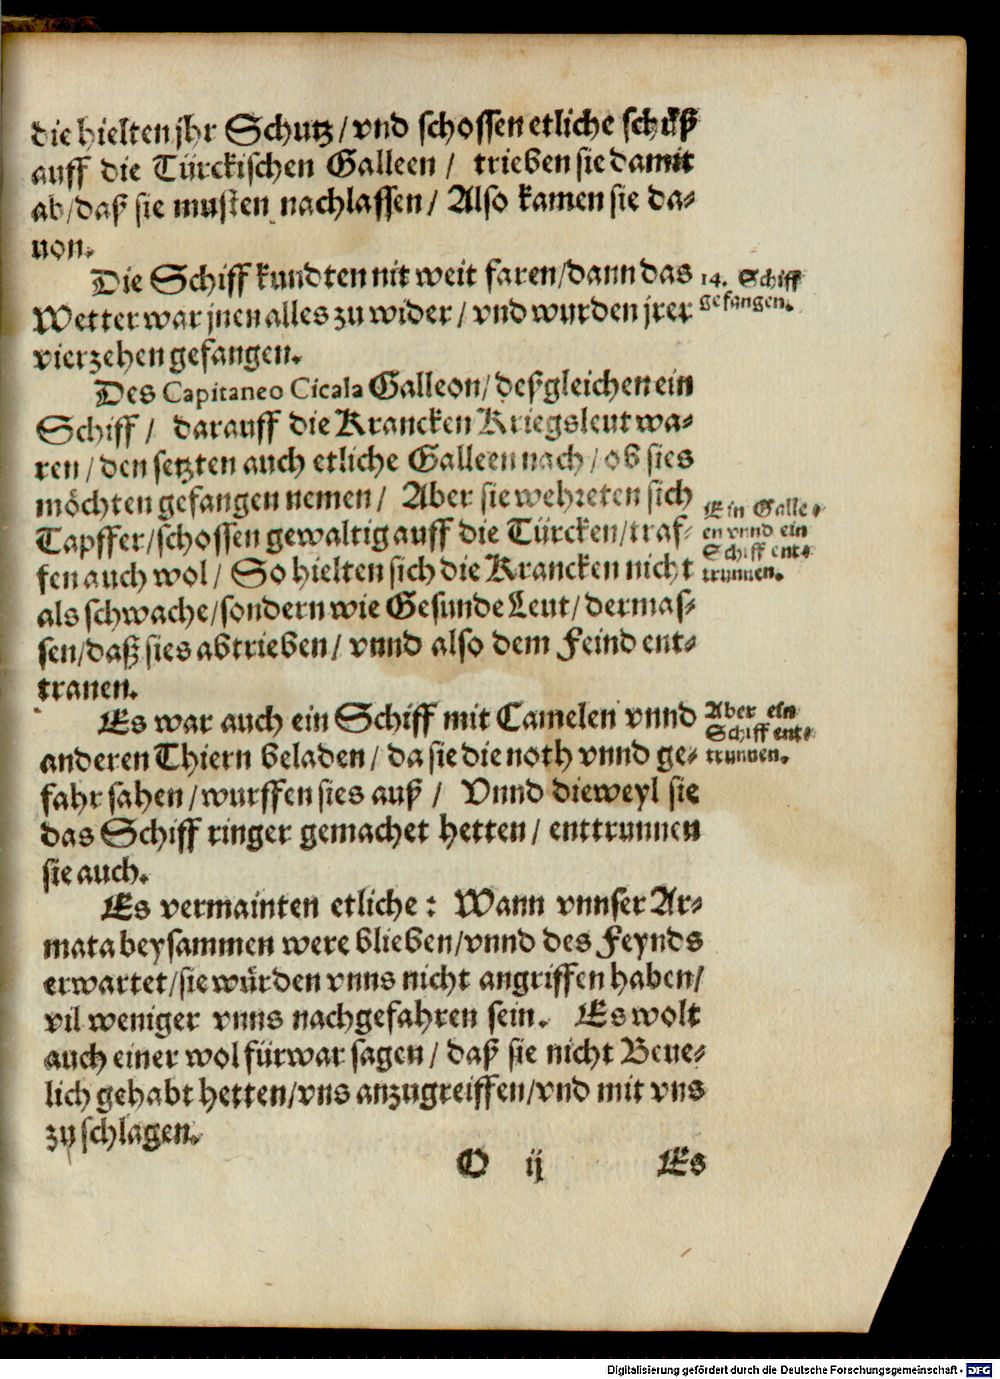 die hielten jhr Schutz / vnd schossen etliche schüß
auff die Türckischen Galleen / trieben sie damit
ab / daß sie musten nachlassen / Also kamen sie da-
uon.
Die Schiff kundten nit weit faren / dann das
Wetter war jnen alles zu wider / vnd wurden jrer
vierzehen gefangen.
14. Schiff
gefangen.
Des Capitaneo Cicala Galleon / deßgleichen ein
Schiff / darauff die Krancken Kriegsleut wa-
ren / den setzten auch etliche Galleen nach / ob sies
möchten gefangen nemen / Aber sie wehreten sich
Tapffer / schossen gewaltig auff die Türcken / traf-
fen auch wol / So hielten sich die Krancken nicht
als schwache / sondern wie Gesunde Leut / dermas-
sen / daß sies abtrieben / vnnd also dem Feind ent-
tranen.
Ein Galle-
en vnnd ein
Schiff ent-
trunnen.
Es war auch ein Schiff mit Camelen vnnd
anderen Thiern beladen / da sie die noth vnnd ge-
fahr sahen / wurffen sies auß / Vnnd dieweyl sie
das Schiff ringer gemachet hetten / enttrunnen
sie auch.
Aber ein
Schiff ent-
trunnen.
Es vermainten etliche : Wann vnnser Ar-
mata beysammen were blieben / vnnd des Feynds
erwartet / sie würden vnns nicht angriffen haben /
vil weniger vnns nachgefahren sein. Es wolt
auch einer wol fürwar sagen / daß sie nicht Beue-
lich gehabt hetten / vns anzugreiffen / vnd mit vns
zu schlagen.
O ij Es
Digitalisierung gefördert durch die Deutsche Forschungsgemeinschaft - DFG